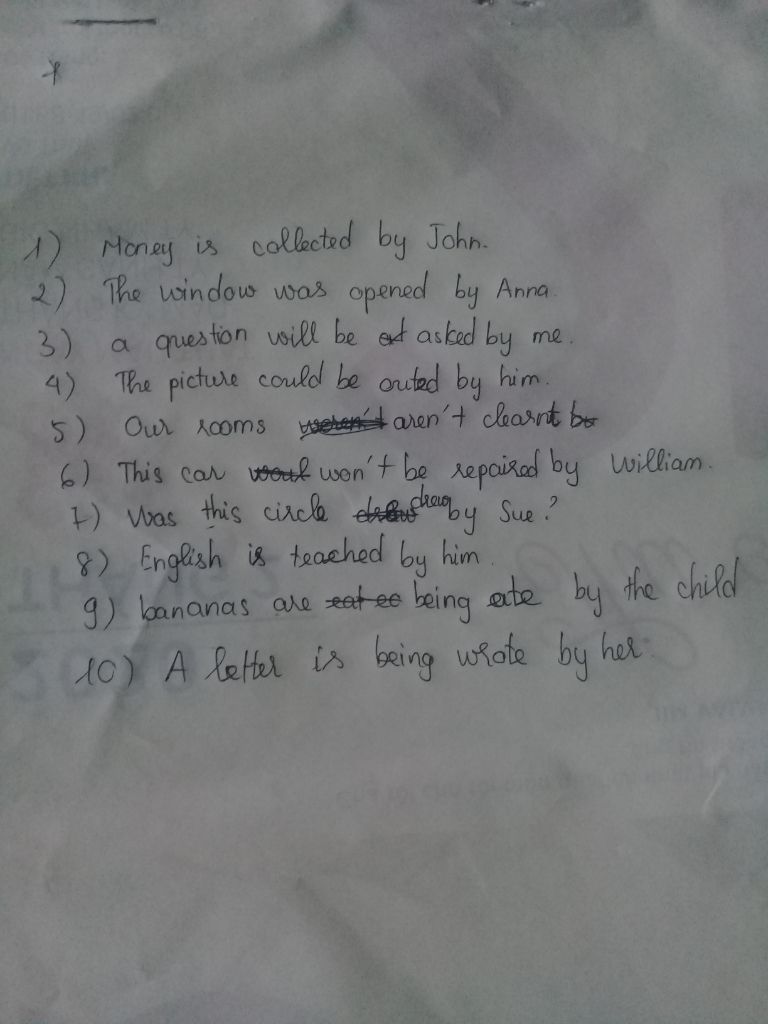 1) Money is collected by John.
2) The window was opened by Anna.
3) a question will be asked by me.
4) The picture could be outed by him.
5) Our rooms aren't clearnt
6) This car won't be repaired by William.
7) Was this circle drew by Sue?
8) English is teached by him.
9) bananas are being ate by the child
10) A letter is being wrote by her.